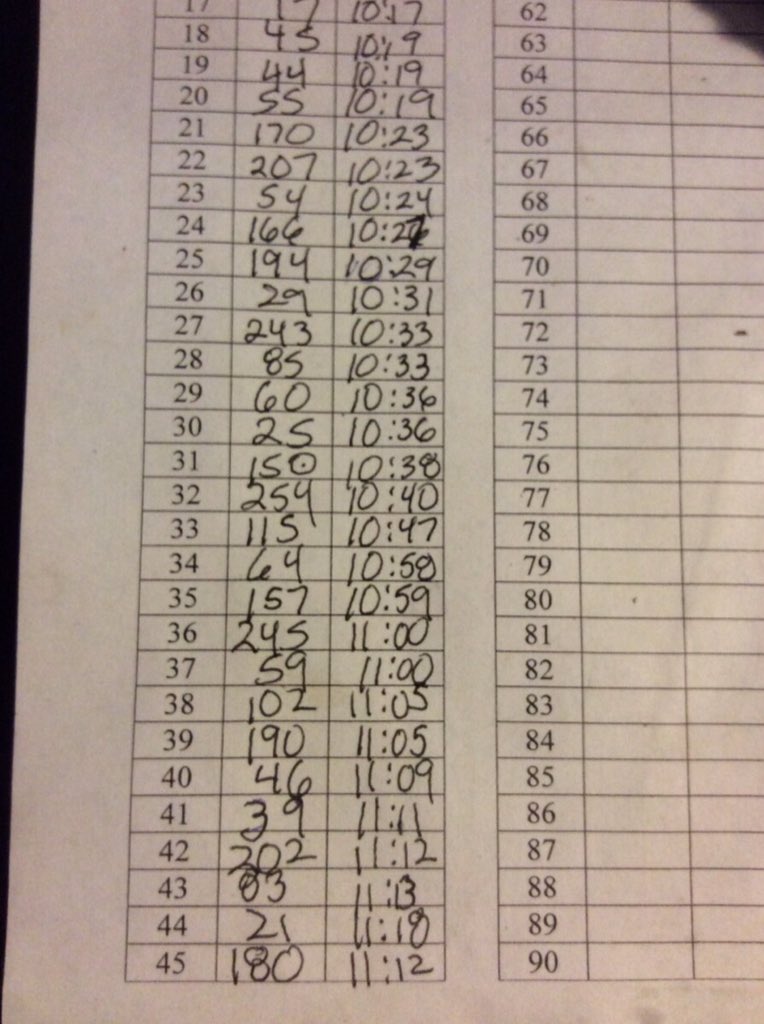 17 17 10:17 62
18 45 10:19 63
19 44 10:19 64
20 55 10:19 65
21 170 10:23 66
22 207 10:23 67
23 54 10:24 68
24 166 69
25 194 10:29 70
26 29 10:31 71
27 243 10:33 72
28 85 10:33 73
29 60 10:36 74
30 25 10:36 75
31 150 10:38 76
32 254 10:40 77
33 115 10:47 78
34 64 10:58 79
35 157 10:59 80
36 245 11:00 81
37 59 11:00 82
38 102 11:05 83
39 190 11:05 84
40 46 11:09 85
41 39 11:11 86
42 202 11:12 87
43 83 11:13 88
44 21 11:18 89
45 180 11:12 90